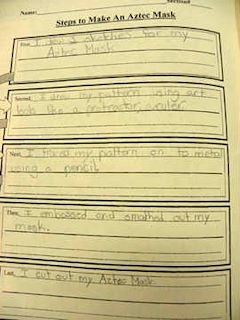 Name:
Steps to Make An Aztec Mask
First, I sketches for my
Aztec Mask.
Second, I drew my pattern using art
tools like a protractor, ruler.
Next, I my pattern on to metal
using a pencil.
Then, I embossed and out my
mask.
Last, I cut out my Aztec Mask